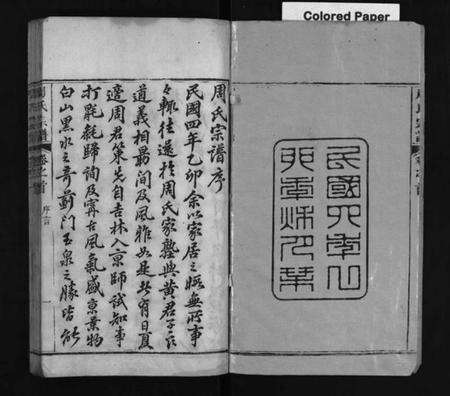 Colored Paper
民國六年
周氏宗譜序
民國四年乙卯余以家居之暇無所事
々輒往還於周氏家塾與黃君子
道義相最間及風雅如是者有日夏
適周君策先自吉林入京師試知事
打毷氉歸詢及寗古風氣盛京景物
白山黑水之奇薊門玉泉之勝皆能
周氏宗譜 卷之首 序言 一